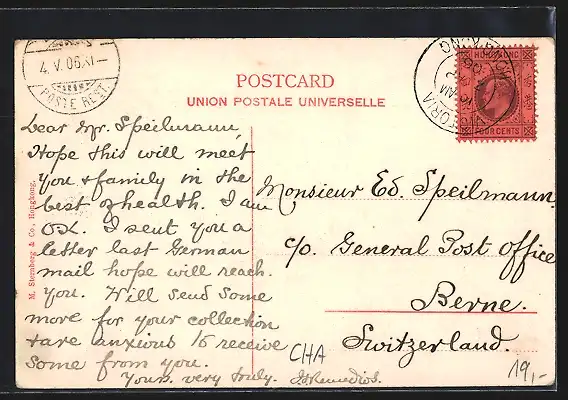 4. V. 06. XI—
POSTE REST.
POSTCARD
UNION POSTALE UNIVERSELLE
VICTORIA
HONG KONG
HONG KONG
FOUR CENTS
Dear Mr. Speilmann,
Hope this will meet
you & family in the
best of health. I am
OK. I sent you a
letter last German
mail hope will reach
you. Will send some
more for your collection
& are anxious to receive
some from you.
Yours very truly.
Monsieur Ed. Speilmann.
c/o General Post Office
Berne.
Switzerland.
M. Sternberg & Co., Hongkong.
CHA
19,-